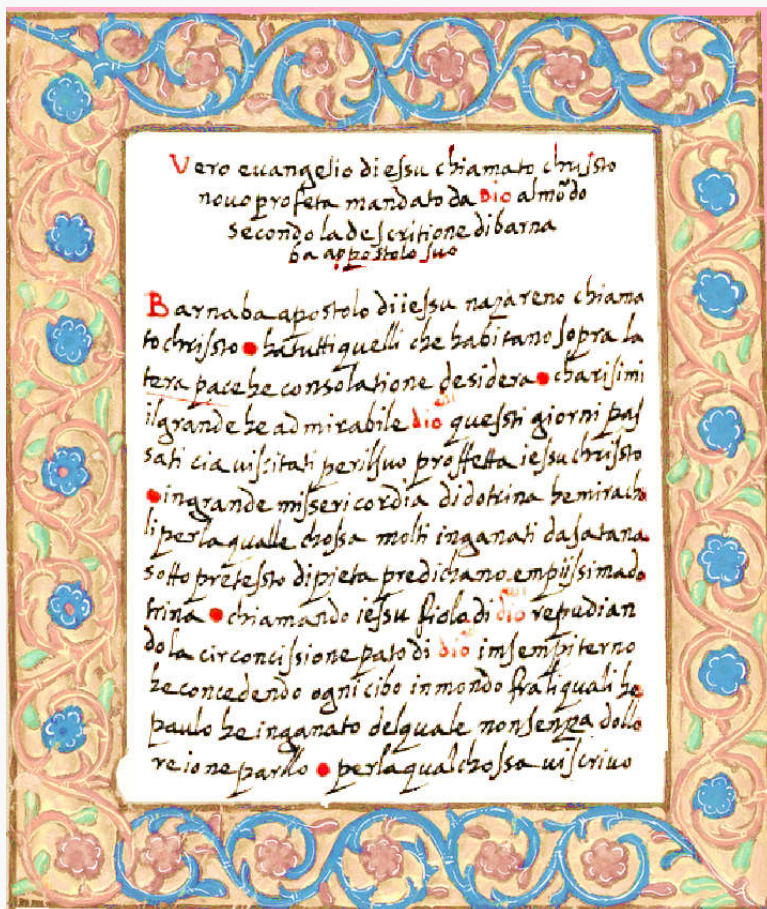 Vero euangelio di essu chiamato chrissto
nouo profeta mandato da Dio al mōdo
secondo la descritione di barna
ba appostolo suo
Barnaba apostolo di iessu nazareno chiama
to chrissto ha tutti quelli che habitano sopra la
tera pace he consolatione desidera charisimi
il grande he admirabile dio quessti giorni pas
sati cia uiscitati per il suo proffetta iessu chrissto
in grande missericordia di dotrina he mirach
li per la qualle chossa molti inganati da satana
sotto pretessto di pieta predichano empiissima do
trina chiamando iessu fiolo di dio repudian
do la circoncissione pato di dio im sempiterno
he concedendo ogni cibo inmondo fra li quali he
paulo he inganato del quale non senza dollo
re ione parllo per la qual chossa ui scriuo